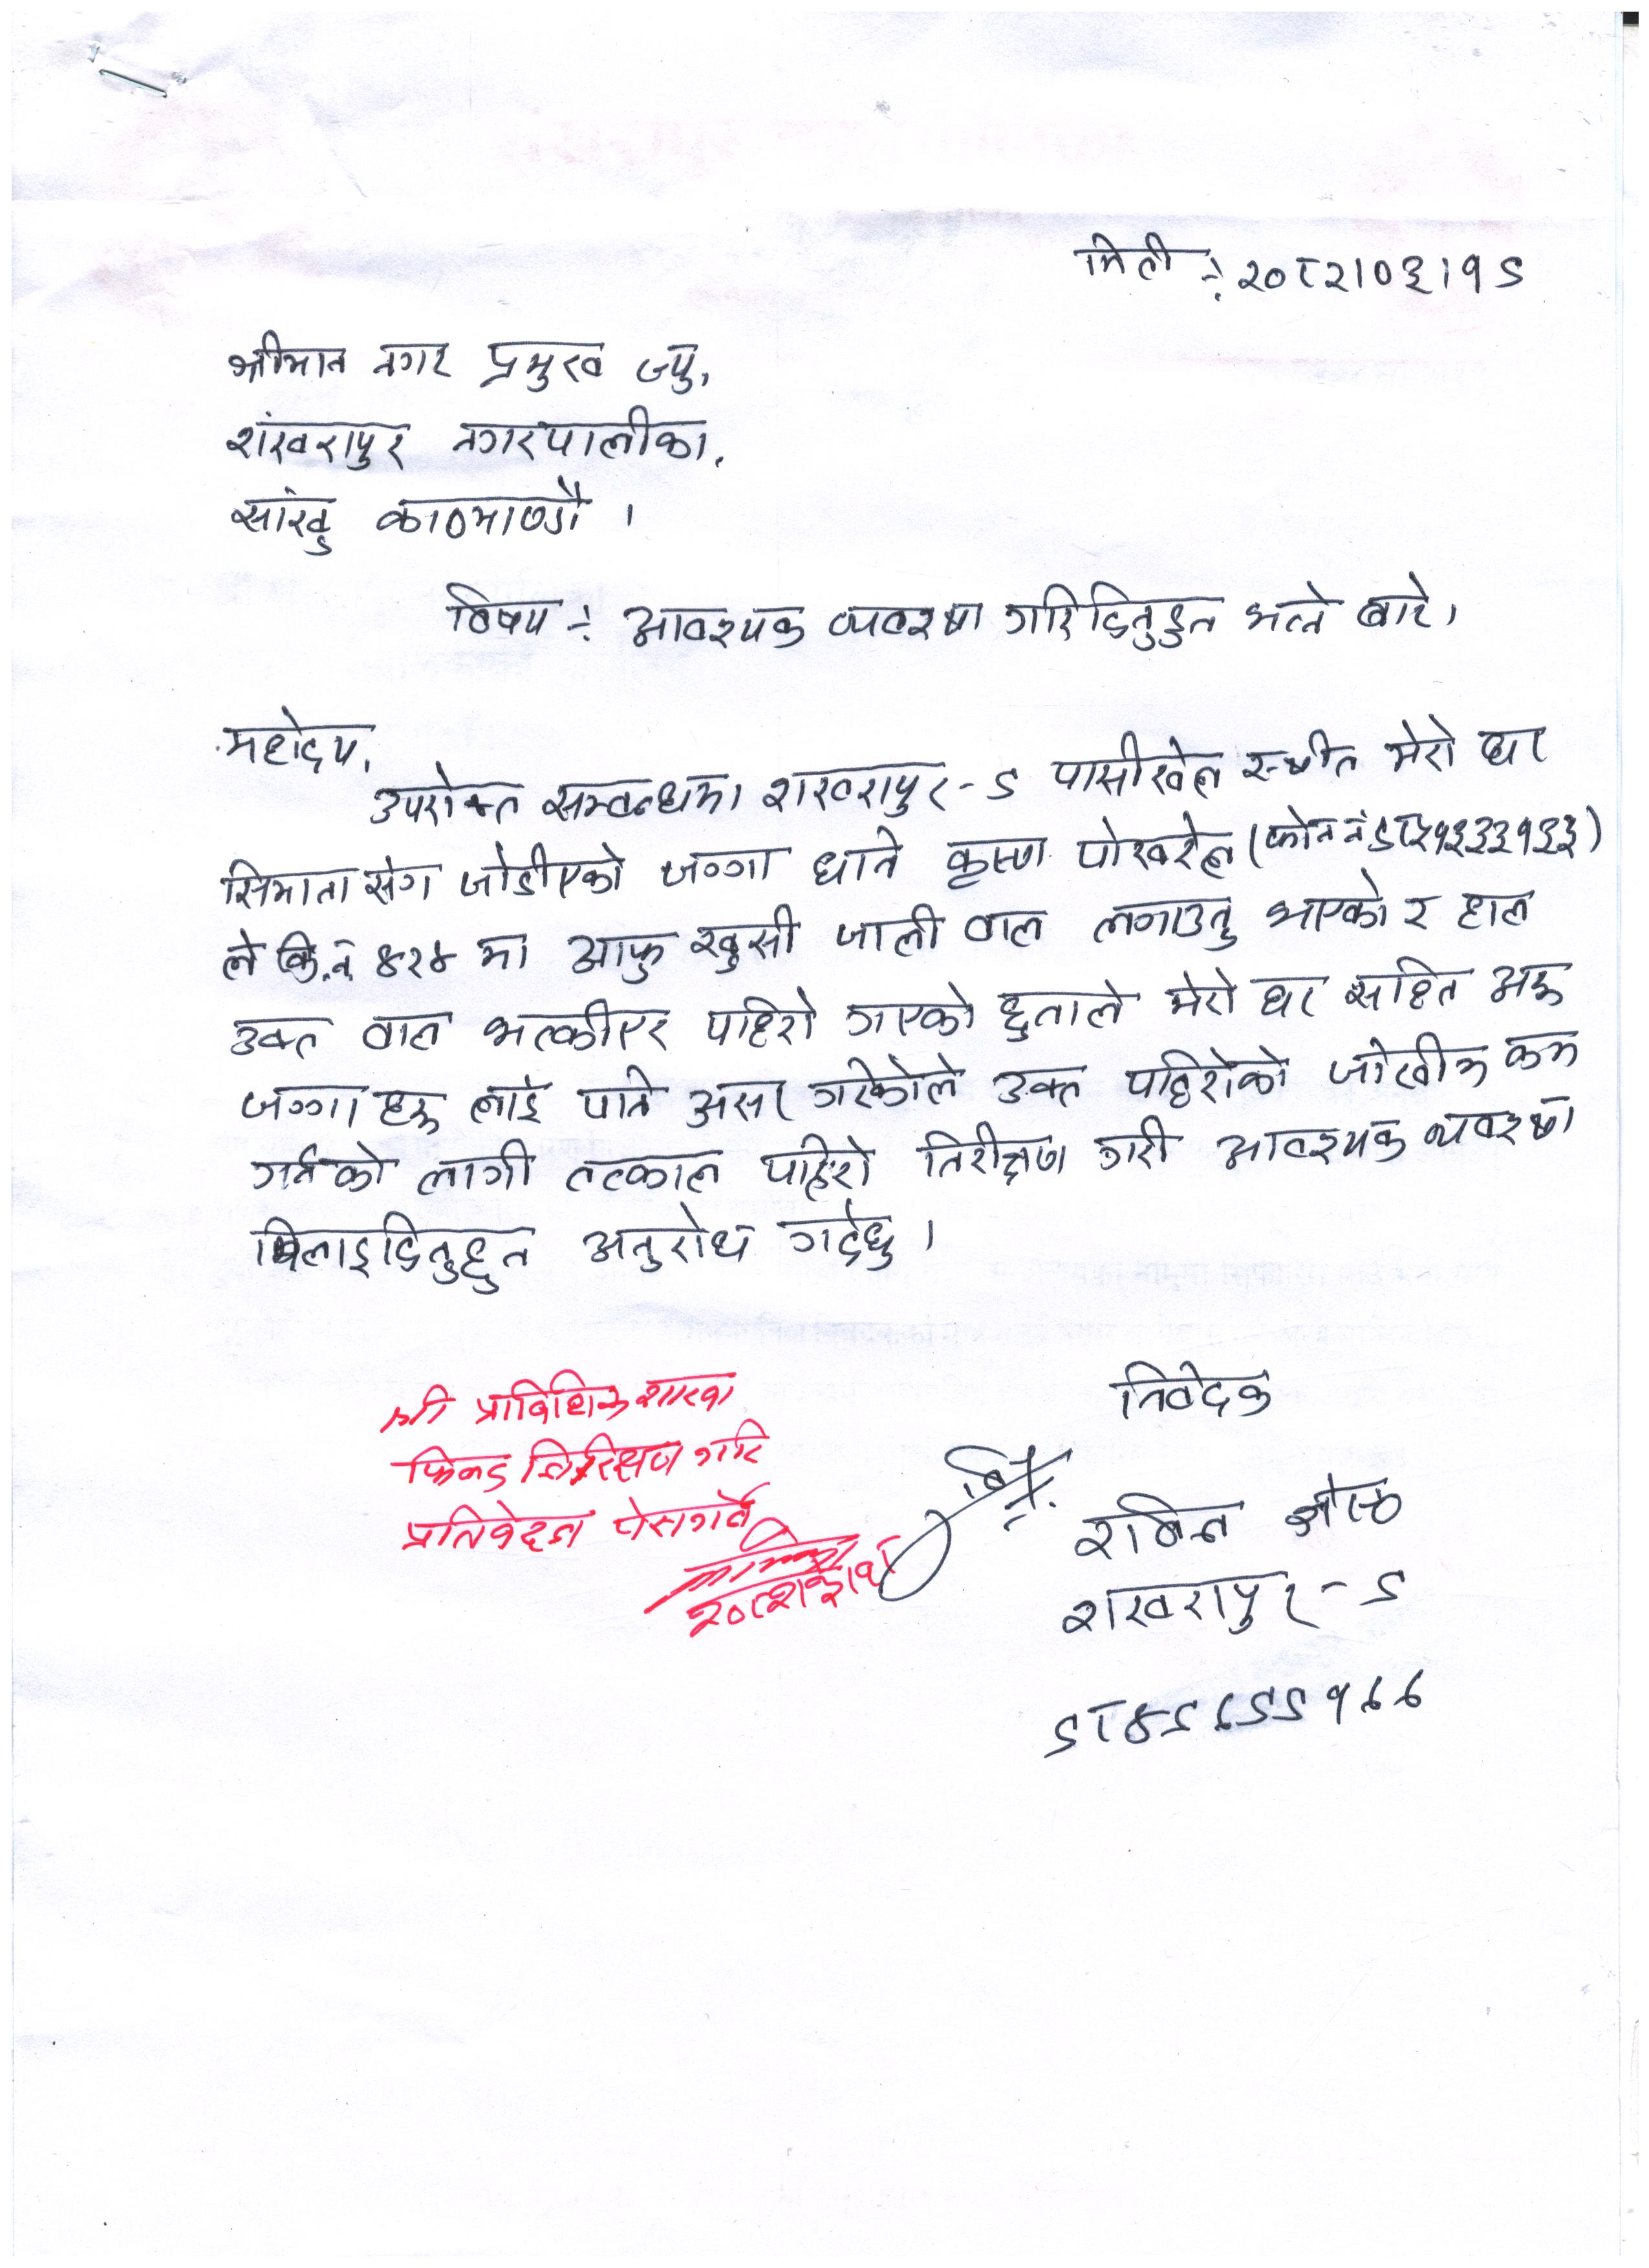 मिती :- २०८२।०३।१९
श्रीमान नगर प्रमुख ज्यु,
शंखरापुर नगरपालीका,
सांखु काठमाण्डौ ।
विषय :- आवश्यक व्यवस्था गरिदिनुहुन भन्ने बारे।
महोदय,
उपरोक्त सम्बन्धमा शंखरापुर-९ पासीखेल स्थीत मेरो घर
सिमाना संग जोडीएको जग्गा धनि कृष्ण पोखरेल (फोन नं ९८५१३३३१३३)
ले कि.नं ४२४ मा आफु खुसी जाली वाल लगाउनु भएको र हाल
उक्त वाल भत्कीएर पाहिरो गएको हुनाले मेरो घर सहित अरू
जग्गा हरू लाई पनि असर गरेकोले उक्त पहिरोको जोखीम कम
गर्नको लागी तत्काल पाहिरो निरीक्षण गरी आवश्यक व्यवस्था
मिलाइदिनुहुन अनुरोध गर्दछु ।
निवेदक
श्री प्राविधिक शाखा
फिल्ड निरिक्षण गरि
प्रतिवेदन पेस गर्ने
रबिन श्रेष्ठ
शंखरापुर-९
९८४९६९९१६६